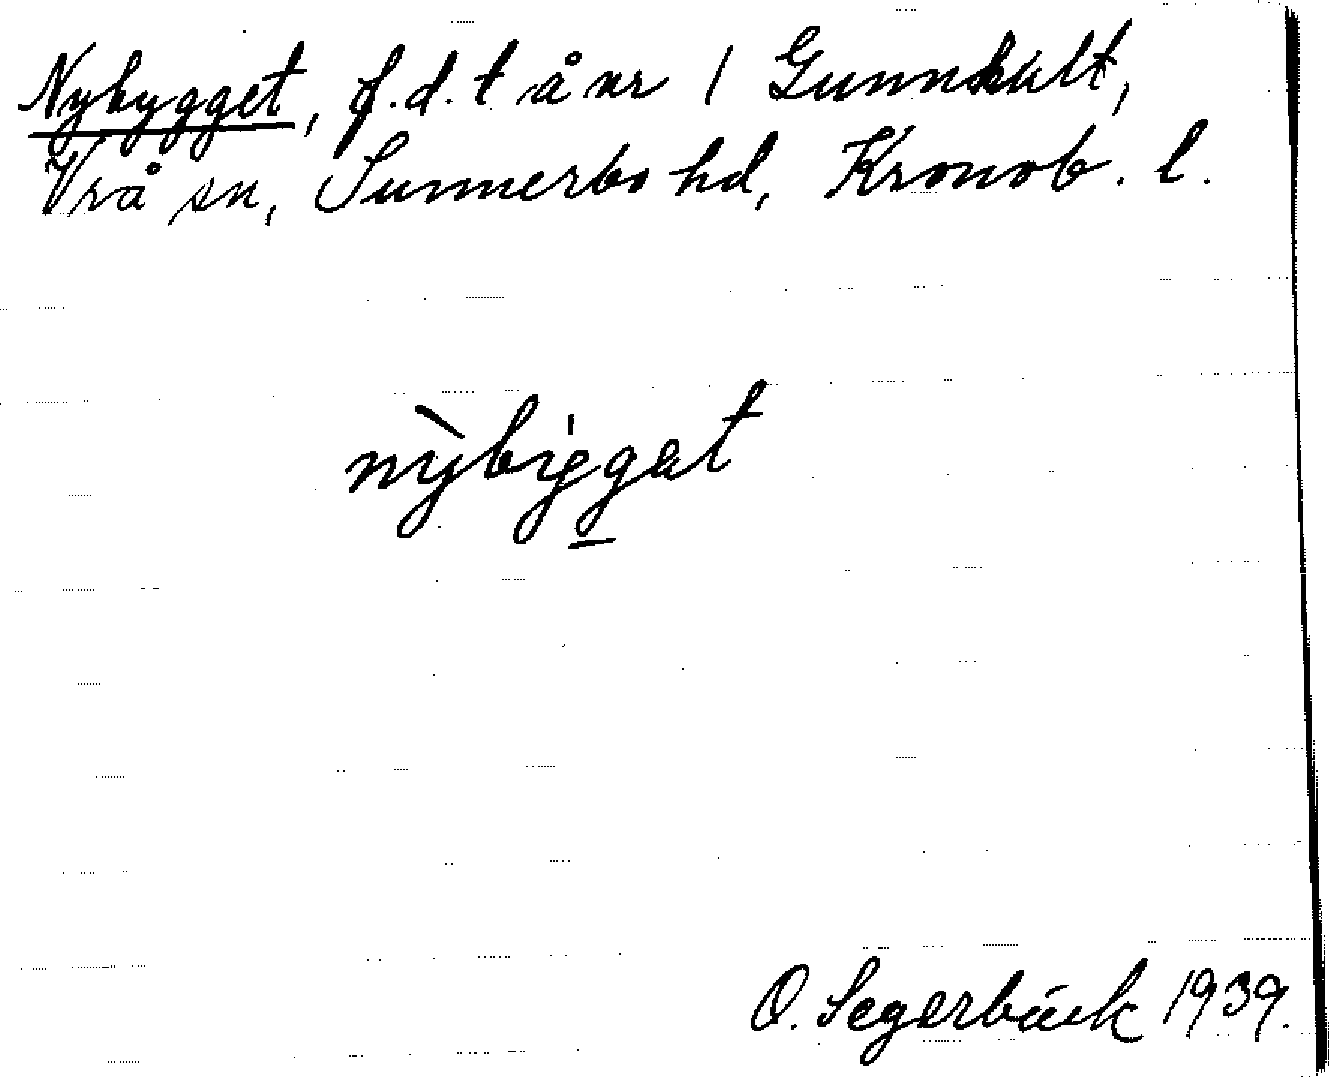 Nybygget, f.d. t å nr 1 Gunnhult,
Vrå sn, Sunnerbo hd, Kronob. l.
nỳbiggat
O. Segerbäck 1939.